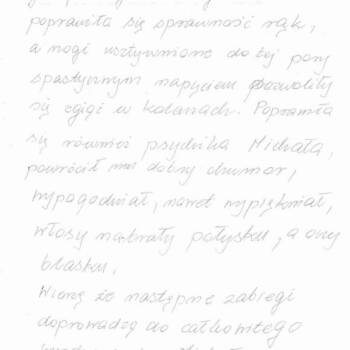 poprawiła się sprawność rąk,
a nogi usztywnione do tej pory
spastycznym napięciem pozwoliły
się zgiąć w kolanach. Poprawiła
się również psychika Michała,
powrócił mu dobry chumor,
wypogodniał, nawet wypiękniał,
włosy nabrały połysku, a oczy
blasku.
Wierzę że następne zabiegi
doprowadzą do całkowitego